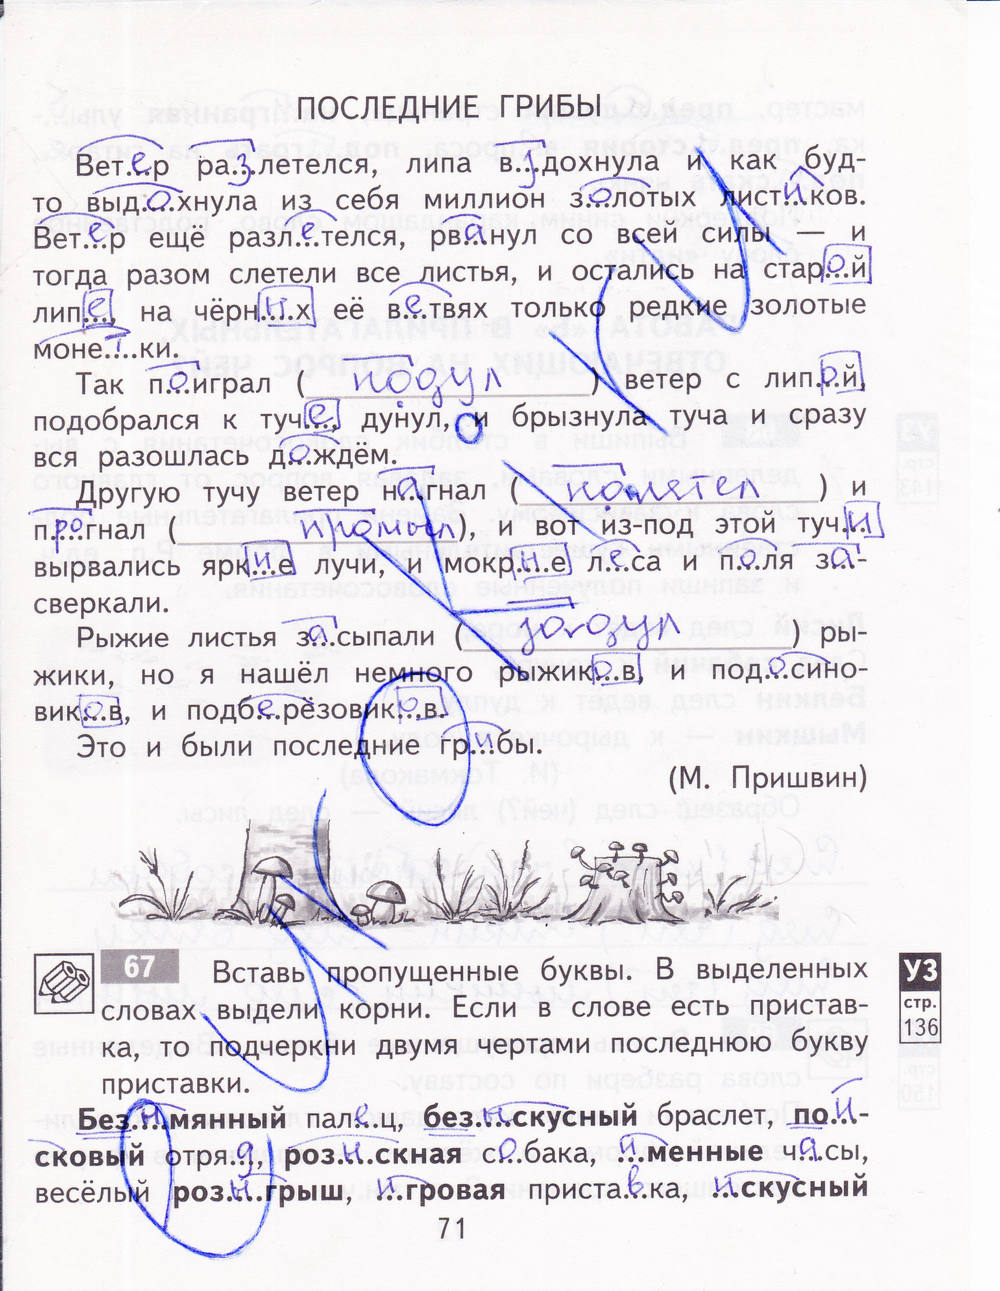 ПОСЛЕДНИЕ ГРИБЫ
Вет.е.р ра.з.летелся, липа в.з.дохнула и как буд-
то выд.о.хнула из себя миллион з.о.лотых лист.и.ков.
Вет.е.р ещё разл.е.телся, рв.а.нул со всей силы — и
тогда разом слетели все листья, и остались на стар.о.й
лип.е., на чёрн.ы.х её в.е.твях только редкие золотые
моне.т.ки.
Так п.о.играл (подул) ветер с лип.о.й,
подобрался к туч.е., дунул, и брызнула туча и сразу
вся разошлась д.о.ждём.
Другую тучу ветер н.а.гнал (налетел) и
п.ро.гнал (), и вот из-под этой туч.и.
вырвались ярк.и.е лучи, и мокр.ы.е л.е.са и п.о.ля з.а.-
сверкали.
Рыжие листья з.а.сыпали () ры-
жики, но я нашёл немного рыжик.о.в, и под.о.сино-
вик.о.в, и подб.е.рёзовик.о.в.
Это и были последние гр.и.бы.
(М. Пришвин)
67 Вставь пропущенные буквы. В выделенных
словах выдели корни. Если в слове есть пристав-
ка, то подчеркни двумя чертами последнюю букву
приставки.
УЗ
стр.
136
Без.ы.мянный пал.е.ц, без.ы.скусный браслет, по.и.-
сковый отря.д., роз.ы.скная с.о.бака, .и.менные ч.а.сы,
весёлый роз.ы.грыш, .и.гровая приста.в.ка, .и.скусный
71